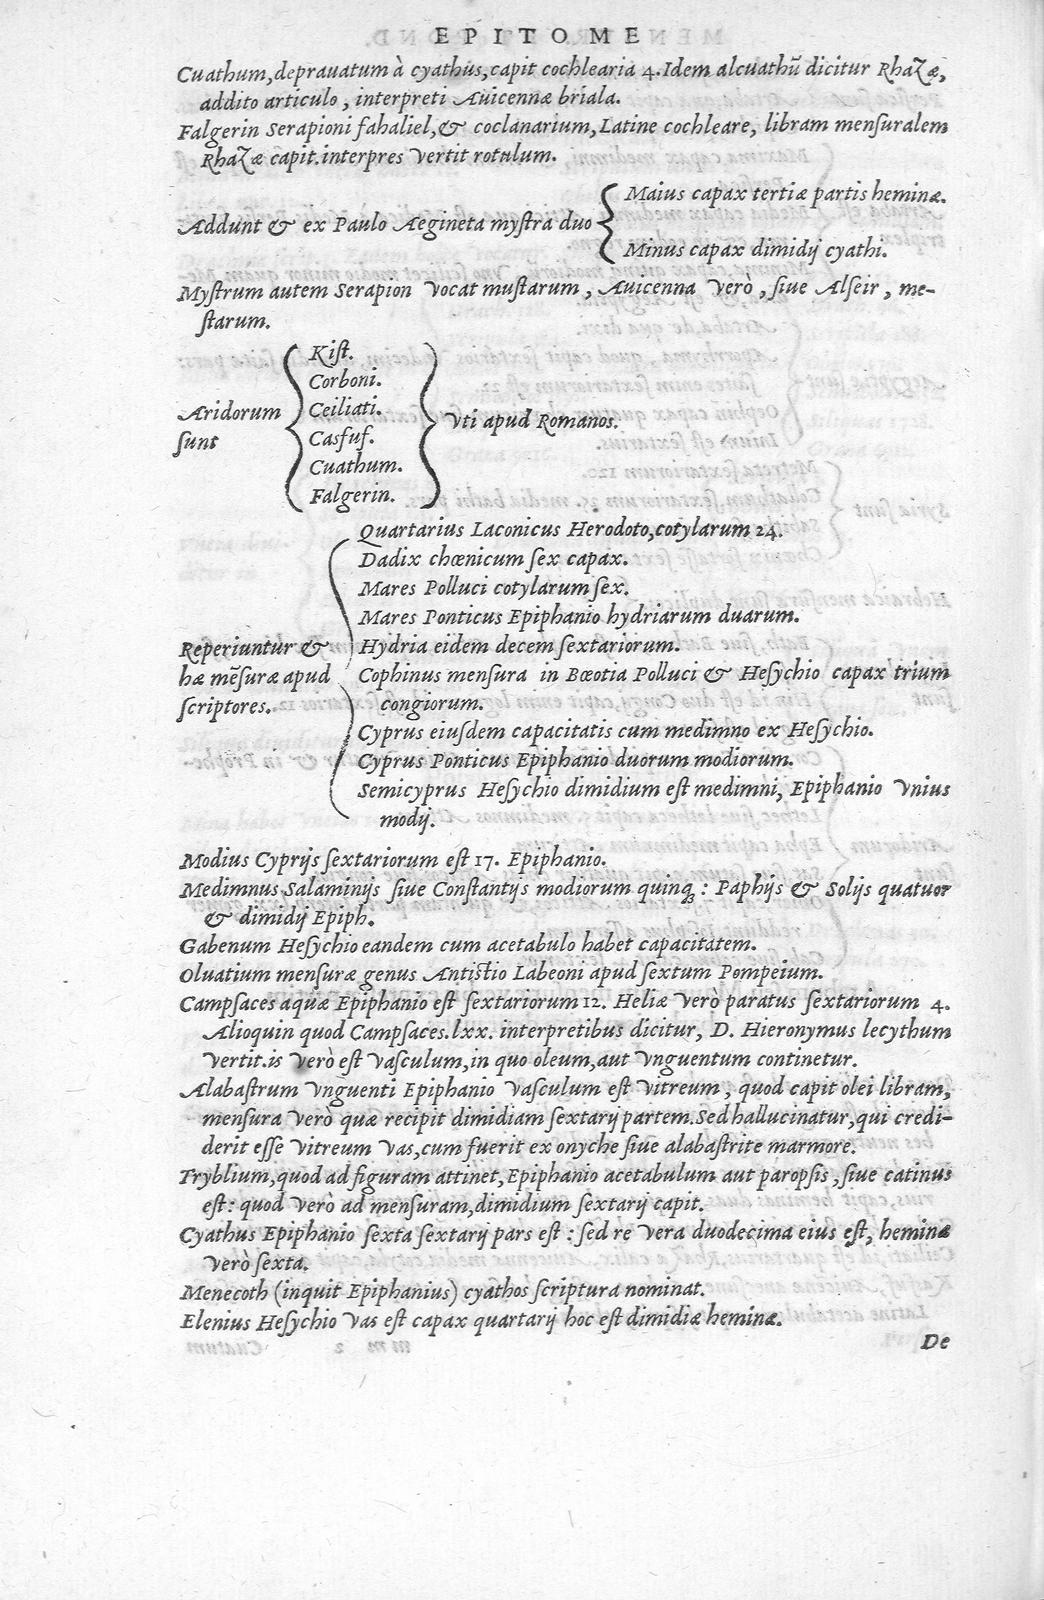 EPITOME
Cuathum, deprauatum à cyathus, capit cochlearia 4. Idem alcuathũ dicitur Rhazæ,
addito articulo, interpreti Auicennæ briala.
Falgerin Serapioni fahaliel, & coclanarium, Latine cochleare, libram menſuralem
Rhazæ capit. interpres vertit rotulum.
Maius capax tertiæ partis heminæ.
Addunt & ex Paulo Aegineta myſtra duo
Minus capax dimidij cyathi.
Myſtrum autem Serapion vocat muſtarum, Auicenna verò, ſiue Alſeir, me-
ſtarum.
Kiſt.
Corboni.
Aridorum
ſunt
Ceiliati.
Casfuf.
Cuathum.
Falgerin.
Vti apud Romanos.
Quartarius Laconicus Herodoto, cotylarum 24.
Dadix chœnicum ſex capax.
Mares Polluci cotylarum ſex.
Mares Ponticus Epiphanio hydriarum duarum.
Reperiuntur &
hæ mẽſuræ apud
ſcriptores.
Hydria eidem decem ſextariorum.
Cophinus menſura in Bœotia Polluci & Heſychio capax trium
congiorum.
Cyprus eiuſdem capacitatis cum medimno ex Heſychio.
Cyprus Ponticus Epiphanio duorum modiorum.
Semicyprus Heſychio dimidium eſt medimni, Epiphanio vnius
modij.
Modius Cyprijs ſextariorum eſt 17. Epiphanio.
Medimnus Salaminijs ſiue Conſtantijs modiorum quinqꝫ: Paphijs & Solijs quatuor
& dimidij Epiph.
Gabenum Heſychio eandem cum acetabulo habet capacitatem.
Oluatium menſuræ genus Antiſtio Labeoni apud ſextum Pompeium.
Campſaces aquæ Epiphanio eſt ſextariorum 12. Heliæ verò paratus ſextariorum 4.
Alioquin quod Campſaces. lxx. interpretibus dicitur, D. Hieronymus lecythum
vertit. is verò eſt vaſculum, in quo oleum, aut vnguentum continetur.
Alabaſtrum vnguenti Epiphanio vaſculum eſt vitreum, quod capit olei libram,
menſura verò quæ recipit dimidiam ſextarij partem. Sed hallucinatur, qui credi-
derit eſſe vitreum vas, cum fuerit ex onyche ſiue alabaſtrite marmore.
Tryblium, quod ad figuram attinet, Epiphanio acetabulum aut paropſis, ſiue catinus
eſt: quod verò ad menſuram, dimidium ſextarij capit.
Cyathus Epiphanio ſexta ſextarij pars eſt: ſed re vera duodecima eius eſt, heminæ
verò ſexta.
Menecoth (inquit Epiphanius) cyathos ſcriptura nominat.
Elenius Heſychio vas eſt capax quartarij hoc eſt dimidiæ heminæ.
De